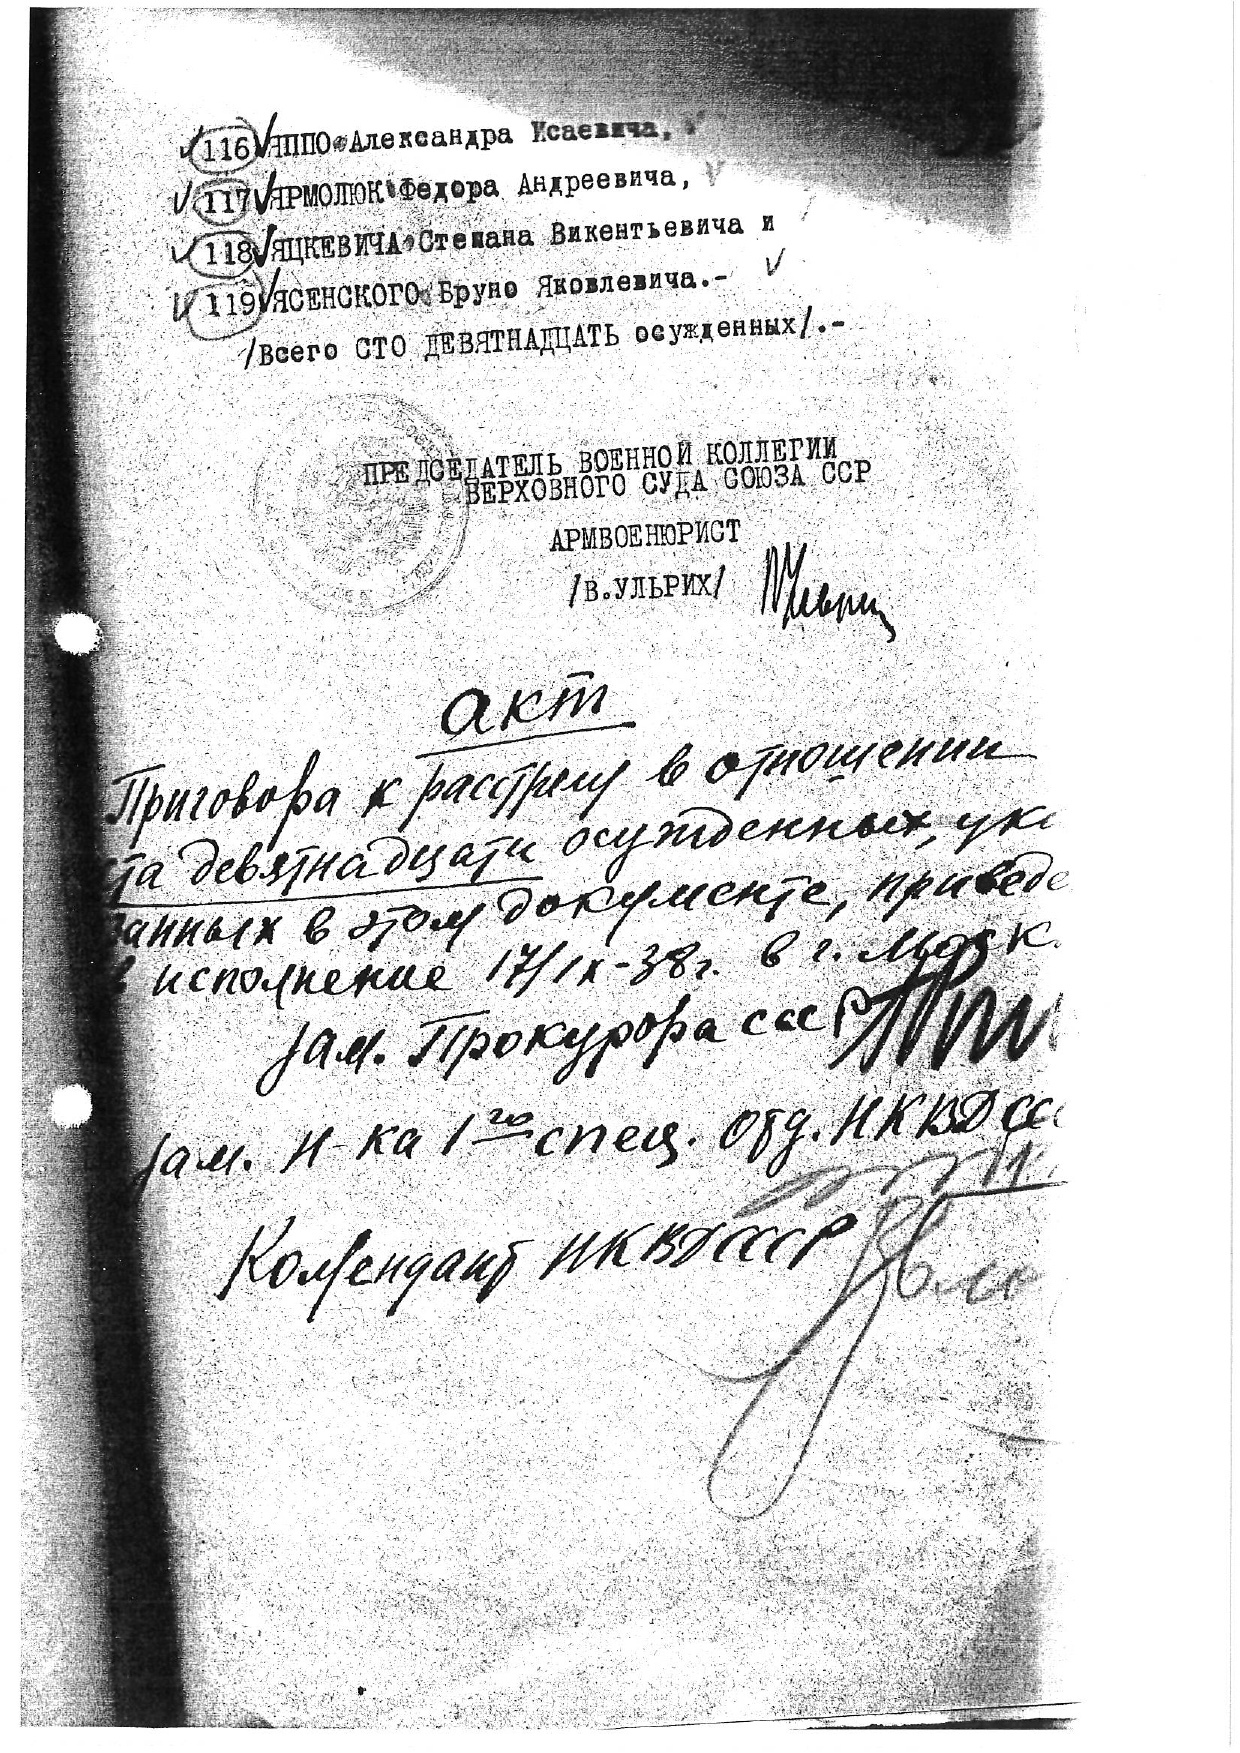 116 ЯППО Александра Исаевича,
117 ЯРМОЛЮК Федора Андреевича,
118 ЯЦКЕВИЧА Степана Викентьевича и
119 ЯСЕНСКОГО Бруно Яковлевича.-
/Всего СТО ДЕВЯТНАДЦАТЬ осужденных/.-
ПРЕДСЕДАТЕЛЬ ВОЕННОЙ КОЛЛЕГИИ
ВЕРХОВНОГО СУДА СОЮЗА ССР
АРМВОЕНЮРИСТ
/В.УЛЬРИХ/
акт
Приговора к расстрелу в отношении
ста девятнадцати осужденных, ука
занных в этом документе, приведе
в исполнение 17/IX-38г. в г. Моск
Зам. Прокурора СССР
Зам. Н-ка 1го спец. отд. НКВД ССС
Комендант НКВД СССР